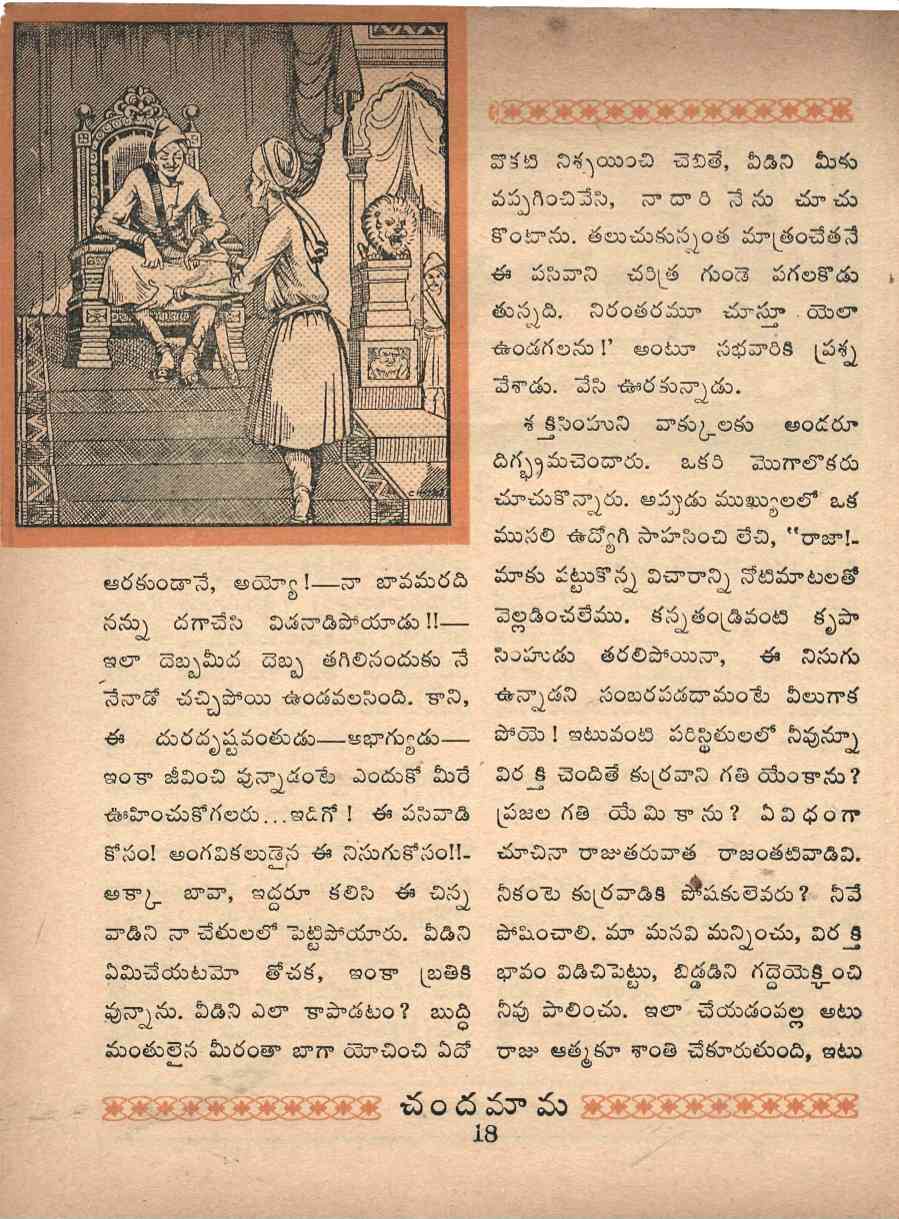 ఆరకుండానే, అయ్యో!—నా బావమరది
నన్ను దగాచేసి విడనాడిపోయాడు!!—
ఇలా దెబ్బమీద దెబ్బ తగిలినందుకు నే
నేనాడో చచ్చిపోయి ఉండవలసింది. కాని,
ఈ దురదృష్టవంతుడు—అభాగ్యుడు—
ఇంకా జీవించి వున్నాడంటే ఎందుకో మీరే
ఊహించుకోగలరు...ఇడిగో! ఈ పసివాడి
కోసం! అంగవికలుడైన ఈ నిసుగుకోసం!!-
అక్కా బావా, ఇద్దరూ కలిసి ఈ చిన్న
వాడిని నా చేతులలో పెట్టిపోయారు. వీడిని
ఏమిచేయటమో తోచక, ఇంకా బ్రతికి
వున్నాను. వీడిని ఎలా కాపాడటం? బుద్ధి
మంతులైన మీరంతా బాగా యోచించి ఏదో
వొకటి నిశ్చయించి చెబితే, వీడిని మీకు
వప్పగించివేసి, నా దారి నేను చూచు
కొంటాను. తలుచుకున్నంత మాత్రంచేతనే
ఈ పసివాని చరిత్ర గుండె పగలకొడు
తున్నది. నిరంతరమూ చూస్తూ యెలా
ఉండగలను!' అంటూ సభవారికి ప్రశ్న
వేశాడు. వేసి ఊరకున్నాడు.
శక్తిసింహుని వాక్కులకు అండరూ
దిగ్భ్రమచెందారు. ఒకరి మొగాలొకరు
చూచుకొన్నారు. అప్పుడు ముఖ్యులలో ఒక
ముసలి ఉద్యోగి సాహసించి లేచి, "రాజా!-
మాకు పట్టుకొన్న విచారాన్ని నోటిమాటలతో
వెల్లడించలేము. కన్నతండ్రివంటి కృపా
సింహుడు తరలిపోయినా, ఈ నిసుగు
ఉన్నాడని సంబరపడదామంటే వీలుగాక
పోయె! ఇటువంటి పరిస్థితులలో నీవున్నూ
విరక్తి చెందితే కుర్రవాని గతి యేంకాను?
ప్రజల గతి యేమి కాను? ఏవిధంగా
చూచినా రాజుతరువాత రాజంతటివాడివి.
నీకంటె కుర్రవాడికి పోషకులెవరు? నీవే
పోషించాలి. మా మనవి మన్నించు, విరక్తి
భావం విడిచిపెట్టు, బిడ్డడిని గద్దెయెక్కించి
నీవు పాలించు. ఇలా చేయడంవల్ల అటు
రాజు ఆత్మకూ శాంతి చేకూరుతుంది, ఇటు
చందమామ
18